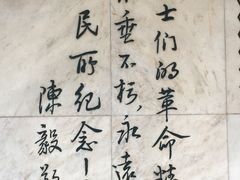 士们的革命精
垂不朽，永远
民所纪念！
陳毅题